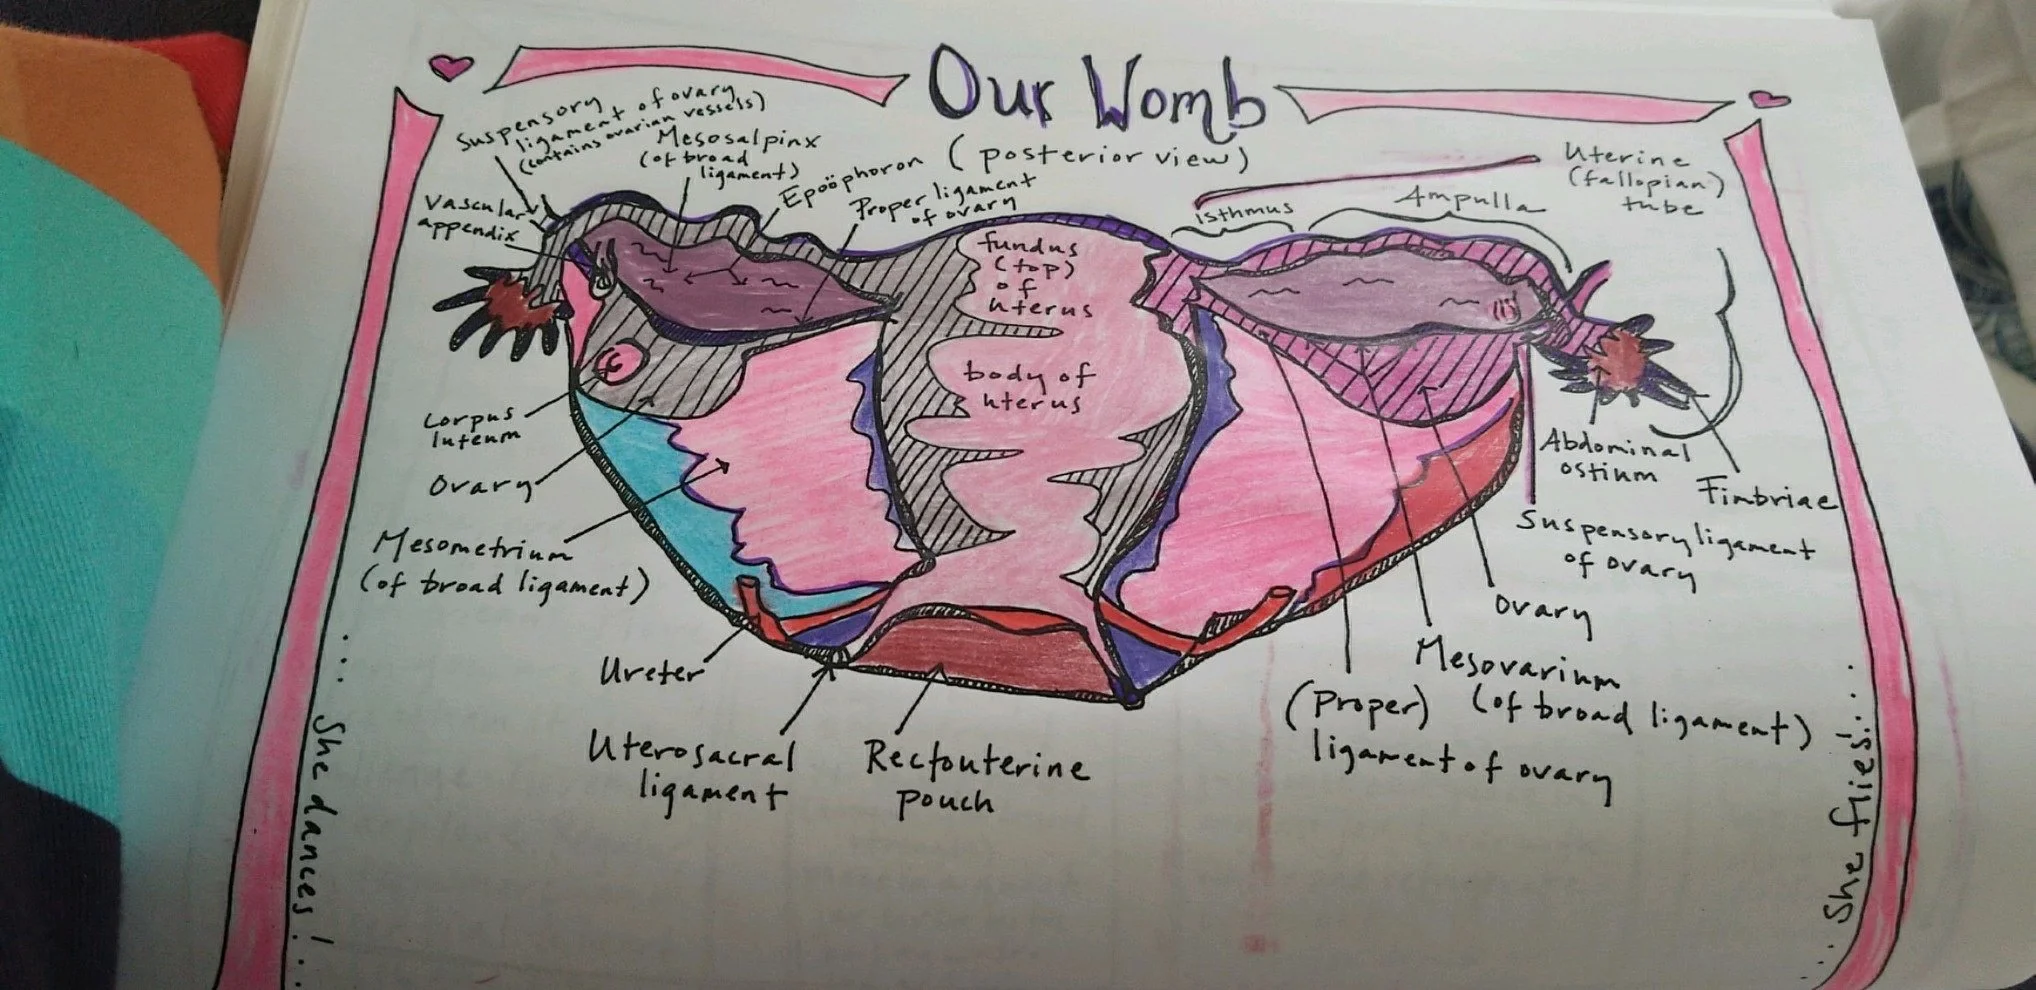 Our Womb
(posterior view)
Suspensory
ligament of ovary
(contains ovarian vessels)
Mesosalpinx
(of broad
ligament)
Epoöphoron
Proper ligament
of ovary
Vascular
appendix
Isthmus
Ampulla
Uterine
(fallopian)
tube
fundus
(top)
of
uterus
body of
uterus
Corpus
luteum
Ovary
Mesometrium
(of broad ligament)
Ureter
Uterosacral
ligament
Rectouterine
pouch
Abdominal
ostium
Fimbriae
Suspensory ligament
of ovary
Ovary
Mesovarium
(of broad ligament)
(Proper)
ligament of ovary
... She dances! ...
... She flies! ...